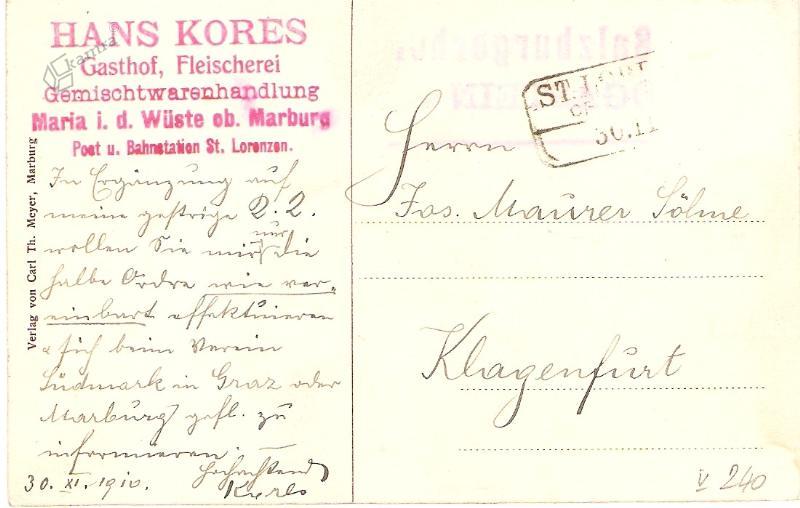 HANS KORES
Gasthof, Fleischerei
Gemischtwarenhandlung
Maria i. d. Wüste ob. Marburg
Post u. Bahnstation St. Lorenzen.
In Ergänzung auf
meine gestrige 2.2.
wollen Sie mir nur die
halbe Ordre wie ver-
einbart effektuieren
& sich beim Verein
Südmark in Graz oder
Marburg gefl. zu
informieren.
Hochachtend
30. XI. 1910. Kores
Verlag von Carl Th. Meyer, Marburg
kamra
Salzburgerhof
ST. LOR
30.11
Herrn
Jos. Maurer Söhne
Klagenfurt
V 240